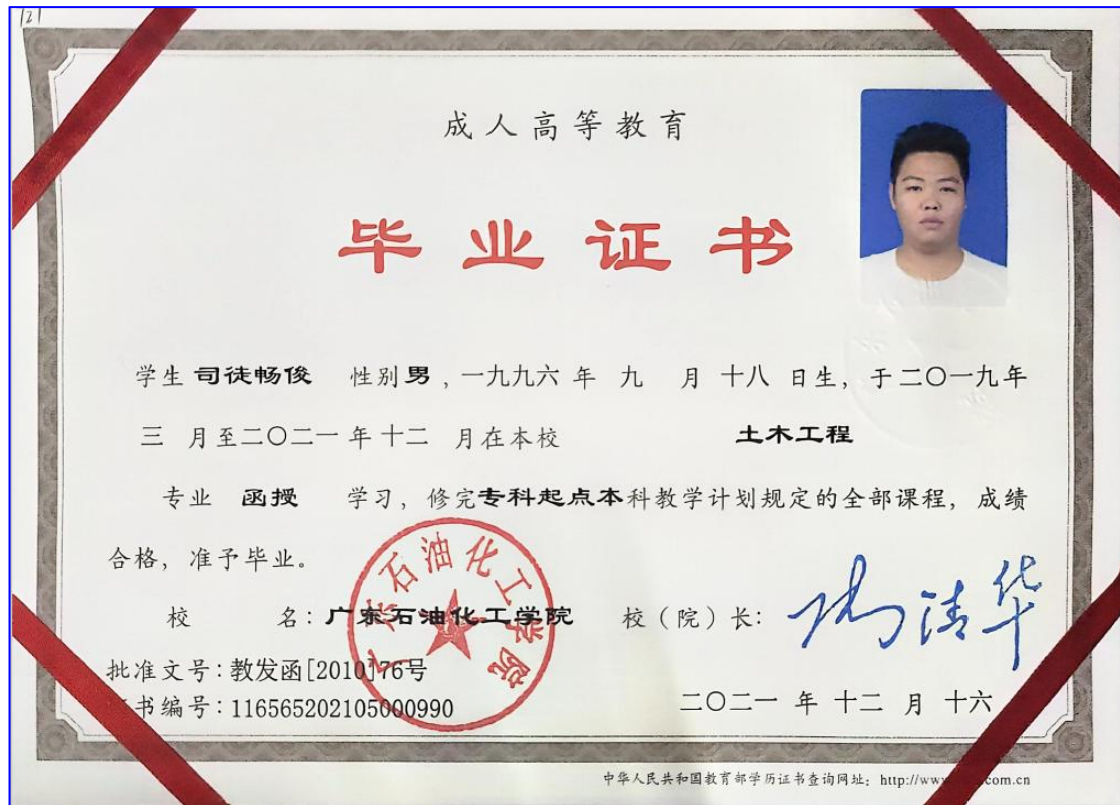 121
成人高等教育
毕业证书
学生 司徒畅俊 性别 男，一九九六 年 九 月 十八 日生，于二〇一九年
三 月至二〇二一 年 十二 月在本校 土木工程
专业 函授 学习，修完专科起点本科教学计划规定的全部课程，成绩
合格，准予毕业。
校 名：广东石油化工学院 校（院）长：
广东石油化工学院
批准文号：教发函[2010]76号
书编号：116565202105000990
二〇二一 年 十二 月 十六
中华人民共和国教育部学历证书查询网址：http://www .com.cn